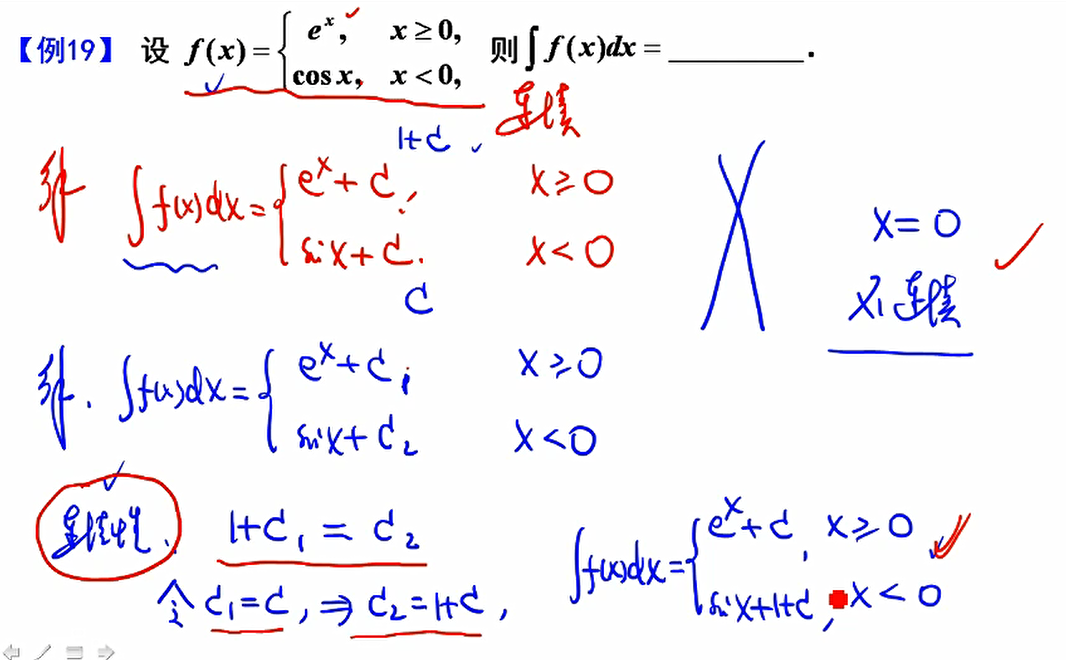 【例19】 设 f(x) = { e^x, x ≥ 0, cos x, x < 0, 则 ∫ f(x)dx = ________ .
连续
1+C
解 ∫f(x)dx = { e^x + C, x ≥ 0
sinx + C. x < 0
C
x = 0
不连续
解. ∫f(x)dx = { e^x + C₁ x ≥ 0
sinx + C₂ x < 0
连续性. 1+C₁ = C₂
令 C₁ = C, ⇒ C₂ = 1+C,
∫f(x)dx = { e^x + C, x ≥ 0
sinx+1+C, x < 0